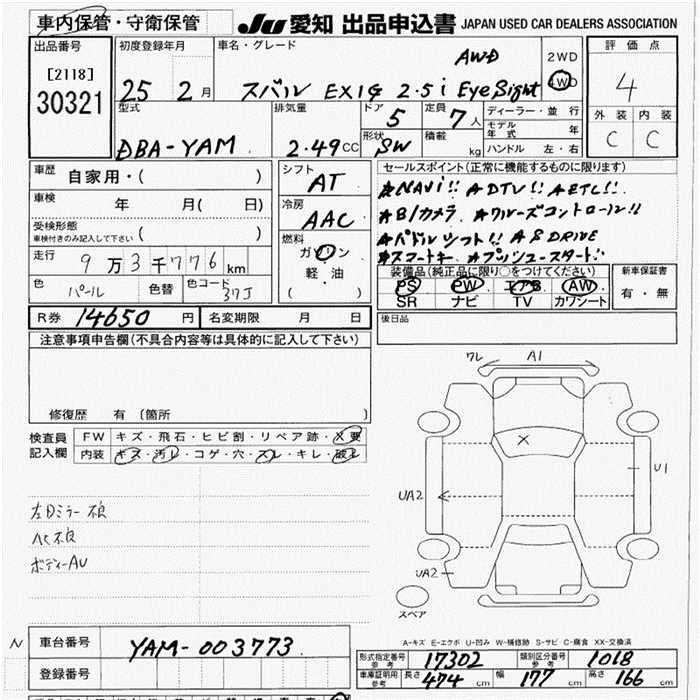 車内保管・守衛保管 JU 愛知 出品申込書 JAPAN USED CAR DEALERS ASSOCIATION
出品番号 初度登録年月 車名・グレード AWD 2WD 評価点
[2118] 30321 25 2月 スバル EXIG 2.5i EyeSight 4WD 4
型式 排気量 ドア 5 定員 7人 ディーラー・並行 外装 内装
DBA-YAM 2.49CC 形状 SW 積載 kg モデル年式 年 C C
ハンドル 左・右
車歴 自家用・( ) シフト AT セールスポイント(正常に機能するものに限ります)
車検 年 月( 日) 冷房 AAC ★NAVi!! ★DTV!! ★ETC!!
受検形態 車検付きのみ記入して下さい ( ) ★B/カメラ ★クルーズコントロール!!
燃料 ガソリン ★パドルシフト!! ★S DRIVE
走行 9万3千776km 軽・油 ★スマートキー ★プッシュスタート!!
色 パール 色替 色コード 37J ( ) 装備品(純正品に限り○をつけてください) 新車保証書
PS PW エアB AW 有・無
SR ナビ TV カワシート
R券 14650円 名変期限 月 日 後日品
注意事項申告欄(不具合内容等は具体的に記入して下さい)
ワレ A1
修復歴 有(箇所 )
検査員記入欄 FW キズ・飛石・ヒビ割・リペア跡・X要
内装 キズ・汚レ・コゲ・穴・スレ・キレ・破レ
U1
UA2
左Dミラー不良
ヘく不良
ボディーAU
UA2
スペア
A-キズ E-エクボ U-凹み W-補修跡 S-サビ C-腐食 XX-交換済
N 車台番号 YAM-003773 形式指定番号 参考 17302 類別区分番号 参考 1018
登録番号 車庫証明用 参考 長さ 474cm 幅 177cm 高さ 166cm